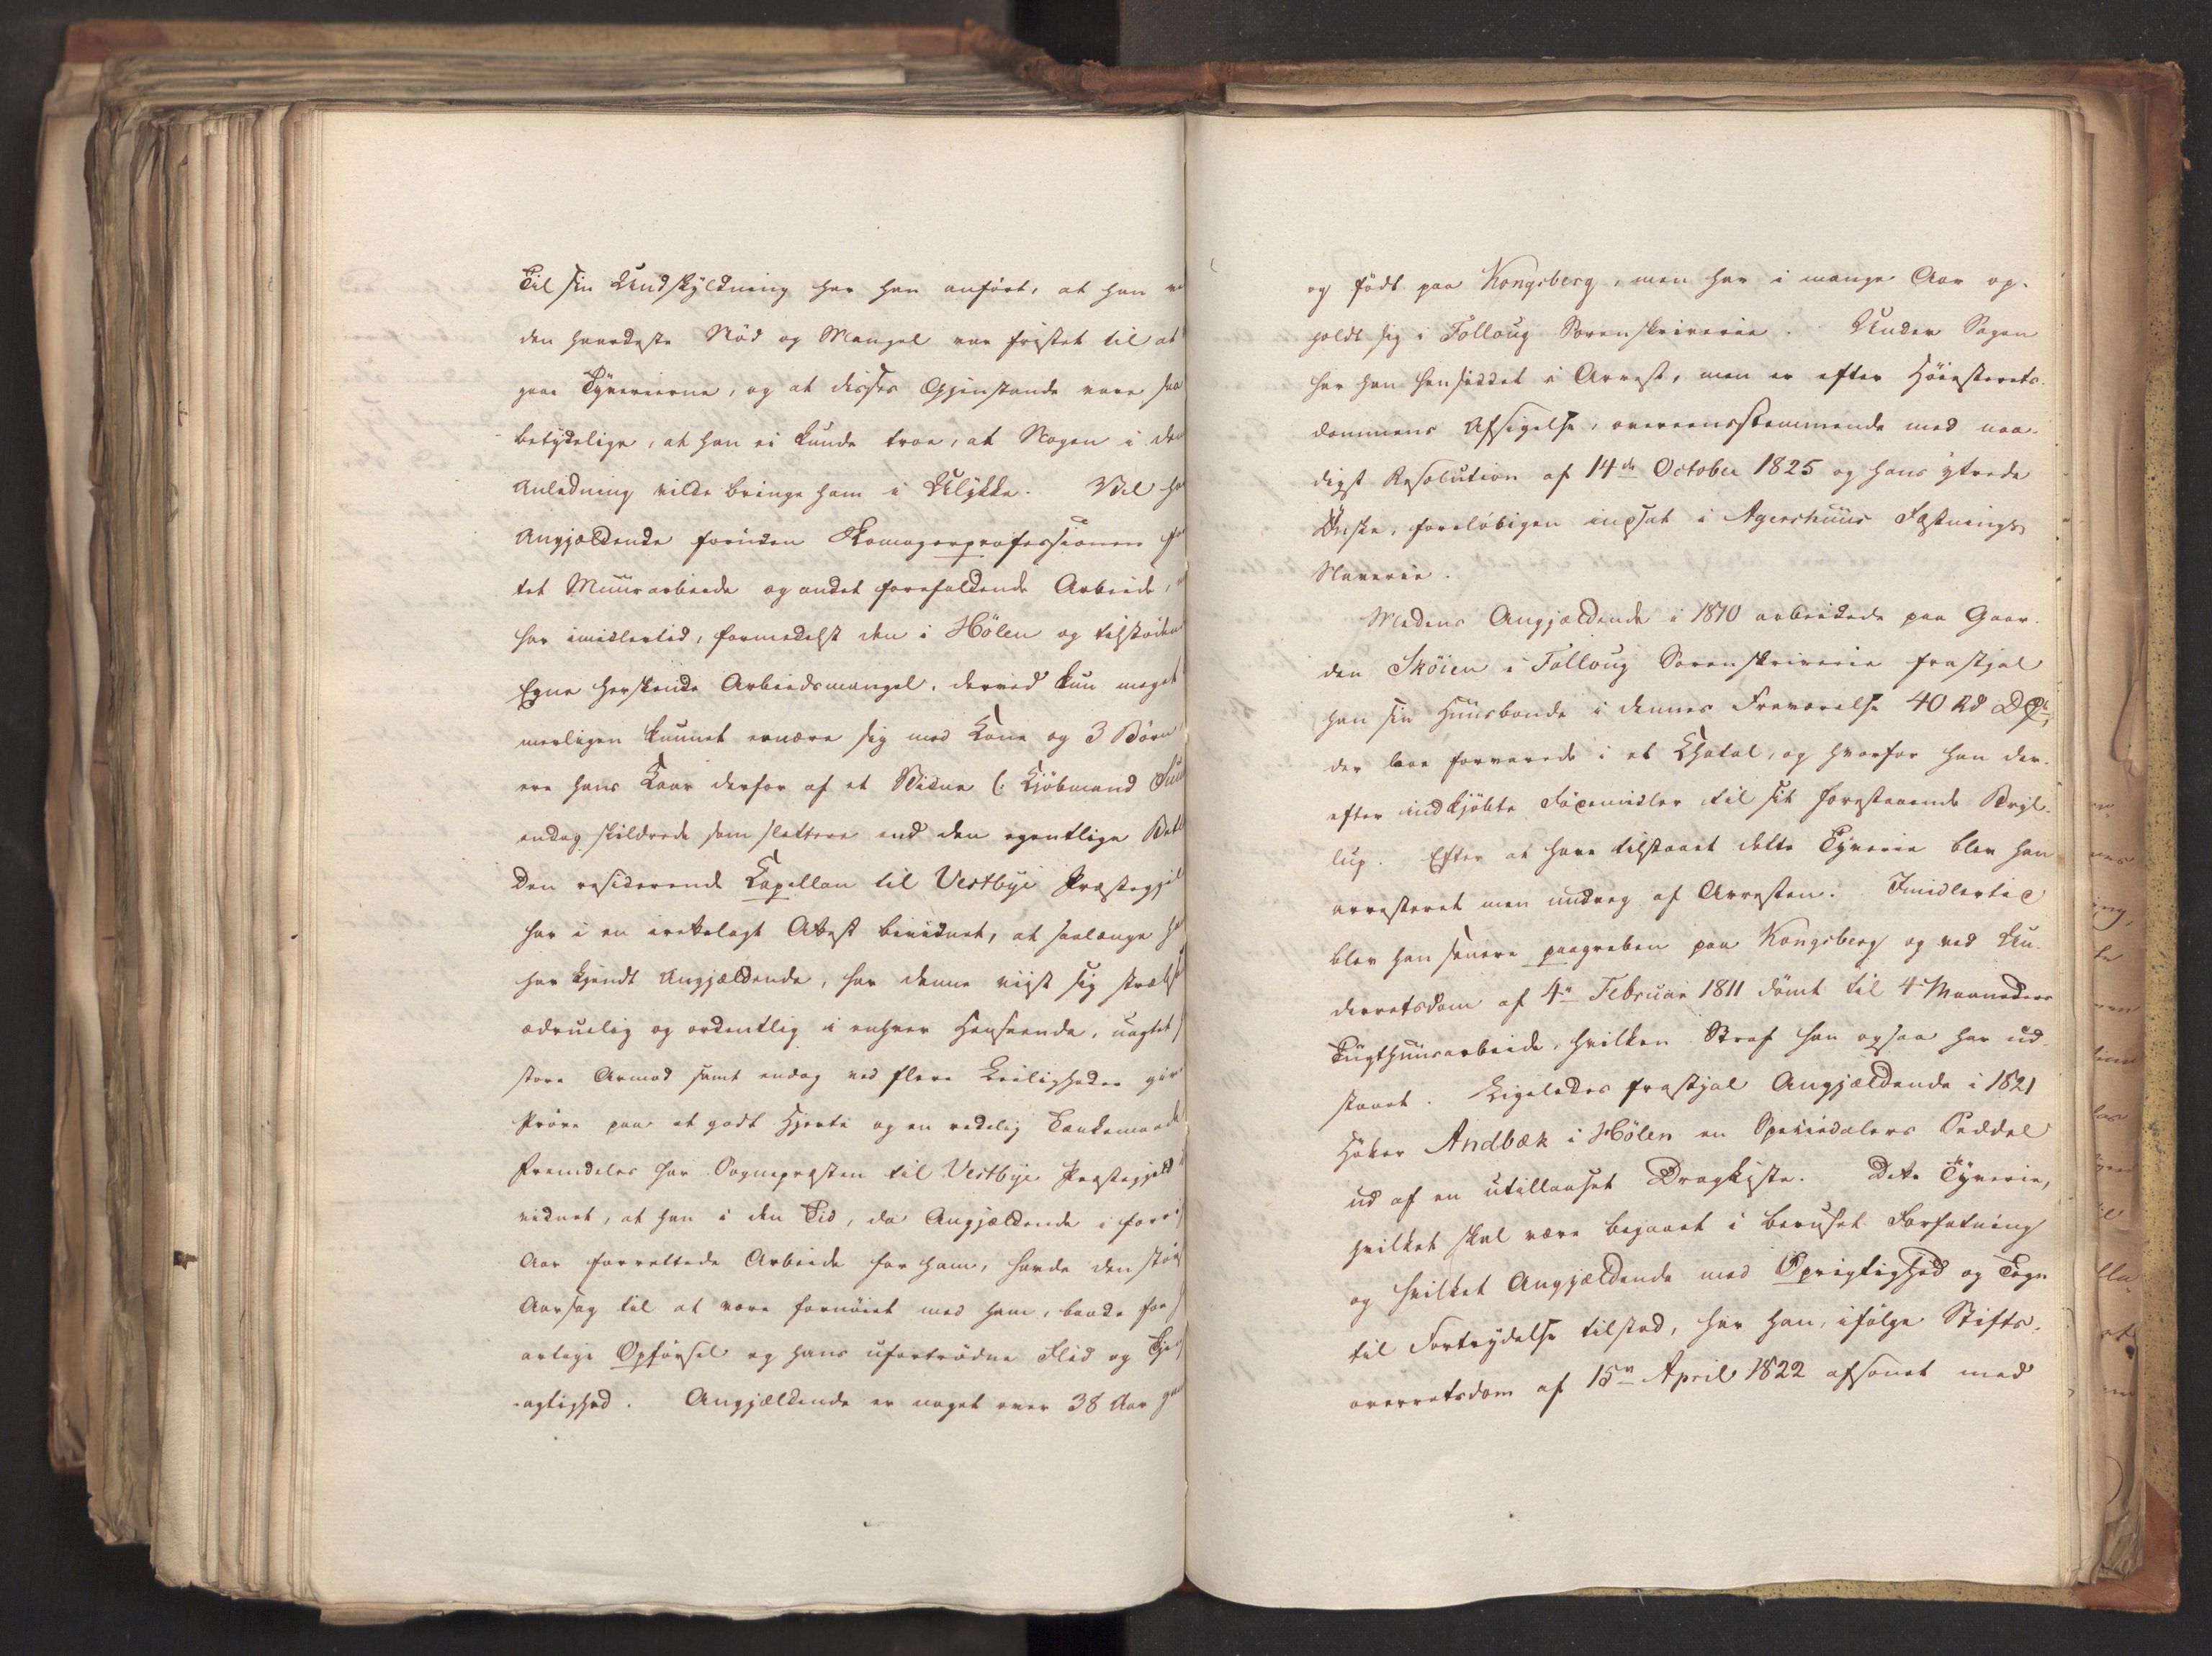 Til sin Undskyldning har han anført, at han
den haardeste Nød og Mangel var fristet til at
gaae Tyverierne, og at disses Gjenstande vare saa
betydelige, at han ei kunde troe, at Nogen i den
Anledning vilde bringe ham i Ulykke. Vel ha
Angjældende foruden Skomagerprofessionen
tet Muurarbeide og andet forefaldende Arbeide,
har imidlertid, formedelst den i Hölen og tilstøden
Egne herskende Arbeidsmangel, derved kun meget
merligen kunnet ernære sig med Kone og 3 Børn
ere hans Kaar derfor af et Vidne (: Kjøbmand
endog skildrede som slettere end den egentlige
Den residerende Kapellan til Vestbye Præstegjel
har i en irettelagt Attest bevidnet, at saalænge
har kjendt Angjældende, har denne viist sig
ædruelig og ordentlig i enhver Henseende, uagtet
store Armod samt endog ved flere Leiligheder
Prøve paa et godt Hjerte og en redelig Tænkemaade
Fremdeles har Sognepræsten til Vestbye Præstegjeld
vidnet, at han i den Tid, da Angjældende i
Aar forrettede Arbeide for ham, havde den
Aarsag til at være fornøiet med ham, baade for
artige Opførsel og hans ufortrødne Flid og
agtighed. Angjældende er noget over 38 Aar
og født paa Kongsberg, men har i mange Aar op-
holdt sig i Folloug Sorenskriverie. Under Sagen
har han hensiddet i Arrest, men er efter Høiesterets-
dommens Afsigelse, overeensstemmende med naa-
digst Resolution af 14de October 1825 og hans yttrede
Ønske, foreløbigen indsat i Agershuus Fæstnings
Slaverie.
Medens Angjældende i 1810 arbeidede paa Gaar-
den Sköien i Folloug Sorenskriverie frastjal
han sin Huusbonde i dennes Fraværelse 40 Rd D.C.,
der laae forvarede i et Chatol, og hvorfor han der-
efter indkjøbte Fødemidler til sit forestaaende Bryl-
lup. Efter at have tilstaaet dette Tyverie blev han
arresteret men undveg af Arresten. Imidlertid
blev han senere paagreben paa Kongsberg og ved Un-
derretsdom af 4de Februar 1811 dømt til 4 Maaneders
Tugthuusarbeide, hvilken Straf han ogsaa har ud-
staaet. Ligeledes frastjal Angjældende i 1821
Høker Andbæk i Hölen en Speciedalers Seddel
ud af en utillaaset Dragkiste. Dette Tyverie,
hvilket skal være begaaet i beruset Forfatning
og hvilket Angjældende med Oprigtighed og Tegn
til Fortrydelse tilstod, har han, ifølge Stifts-
overretsdom af 15de April 1822 afsonet med